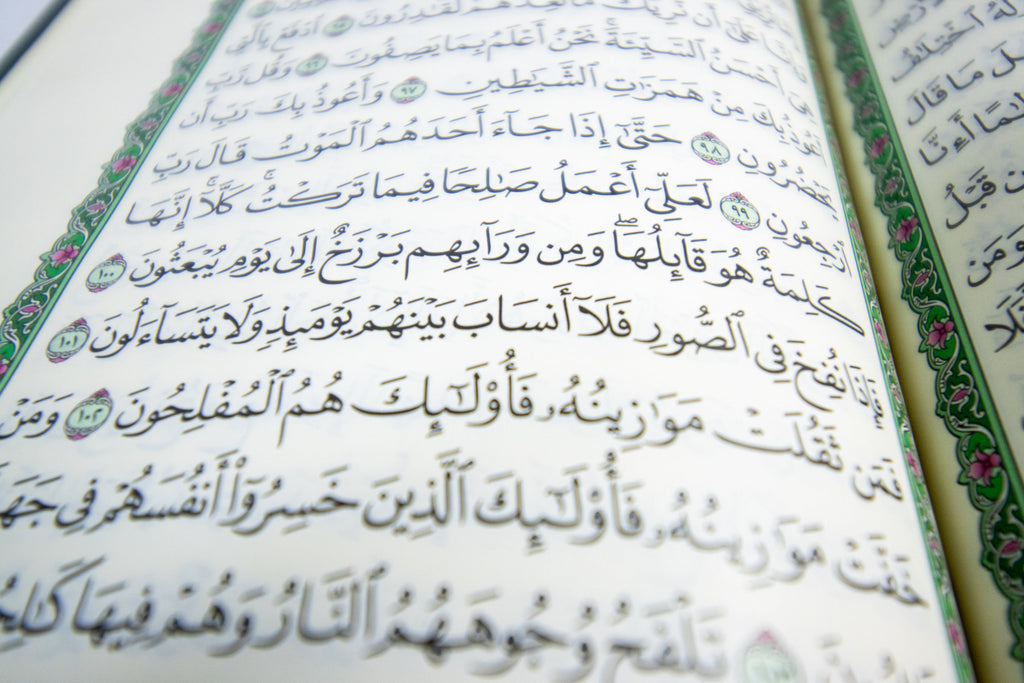 عَلَىٰٓ أَن نُّرِيَكَ مَا نَعِدُهُمْ لَقَـٰدِرُونَ ٩٥ ٱدْفَعْ بِٱلَّتِى
هِىَ أَحْسَنُ ٱلسَّيِّئَةَ نَحْنُ أَعْلَمُ بِمَا يَصِفُونَ ٩٦ وَقُل رَّبِّ
أَعُوذُ بِكَ مِنْ هَمَزَٰتِ ٱلشَّيَـٰطِينِ ٩٧ وَأَعُوذُ بِكَ رَبِّ أَن
يَحْضُرُونِ ٩٨ حَتَّىٰٓ إِذَا جَآءَ أَحَدَهُمُ ٱلْمَوْتُ قَالَ رَبِّ
ٱرْجِعُونِ ٩٩ لَعَلِّىٓ أَعْمَلُ صَـٰلِحًا فِيمَا تَرَكْتُ ۚ كَلَّآ ۚ إِنَّهَا
كَلِمَةٌ هُوَ قَآئِلُهَا ۖ وَمِن وَرَآئِهِم بَرْزَخٌ إِلَىٰ يَوْمِ يُبْعَثُونَ ١٠٠
فَإِذَا نُفِخَ فِى ٱلصُّورِ فَلَآ أَنسَابَ بَيْنَهُمْ يَوْمَئِذٍ وَلَا يَتَسَآءَلُونَ ١٠١
فَمَن ثَقُلَتْ مَوَٰزِينُهُۥ فَأُو۟لَـٰٓئِكَ هُمُ ٱلْمُفْلِحُونَ ١٠٢ وَمَنْ
خَفَّتْ مَوَٰزِينُهُۥ فَأُو۟لَـٰٓئِكَ ٱلَّذِينَ خَسِرُوٓا۟ أَنفُسَهُمْ فِى
تَلْفَحُ وُجُوهَهُمُ ٱلنَّارُ وَهُمْ فِيهَا
ٱخْتِلَـٰفُ
مَا قَالَ
أَءِنَّا
قَبْلُ
وَمَن